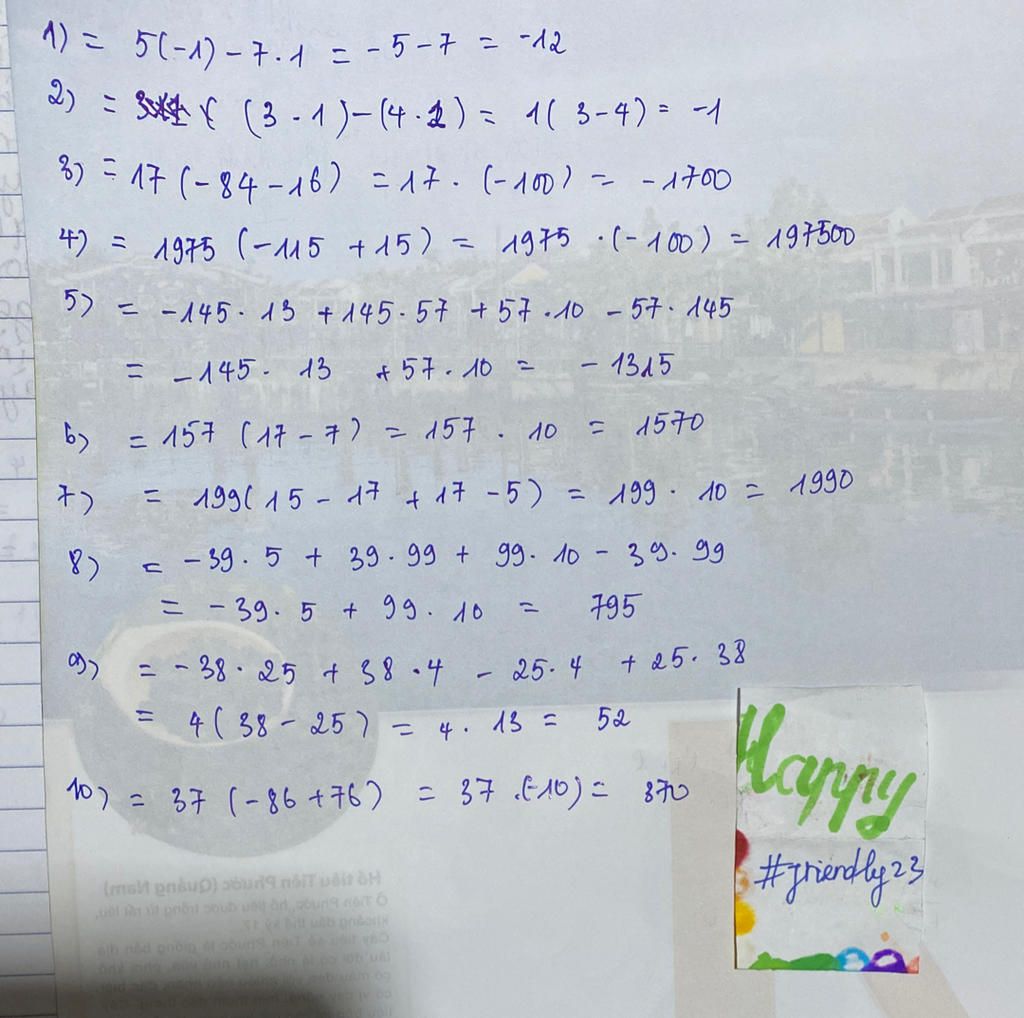 1) = 5(-1) - 7.1 = -5-7 = -12
2) = (3.1)-(4.1) = 1(3-4) = -1
3) = 17(-84-16) = 17.(-100) = -1700
4) = 1975(-115+15) = 1975.(-100) = 197500
5) = -145.13 + 145.57 + 57.10 - 57.145
= -145.13 + 57.10 = -1315
6) = 157(17-7) = 157.10 = 1570
7) = 199(15-17+17-5) = 199.10 = 1990
8) = -39.5 + 39.99 + 99.10 - 39.99
= -39.5 + 99.10 = 795
9) = -38.25 + 38.4 - 25.4 + 25.38
= 4(38-25) = 4.13 = 52
10) = 37(-86+76) = 37.(-10) = 370
Happy
#friendly23
Hồ tiêu Tiên Phước (Quảng Nam)